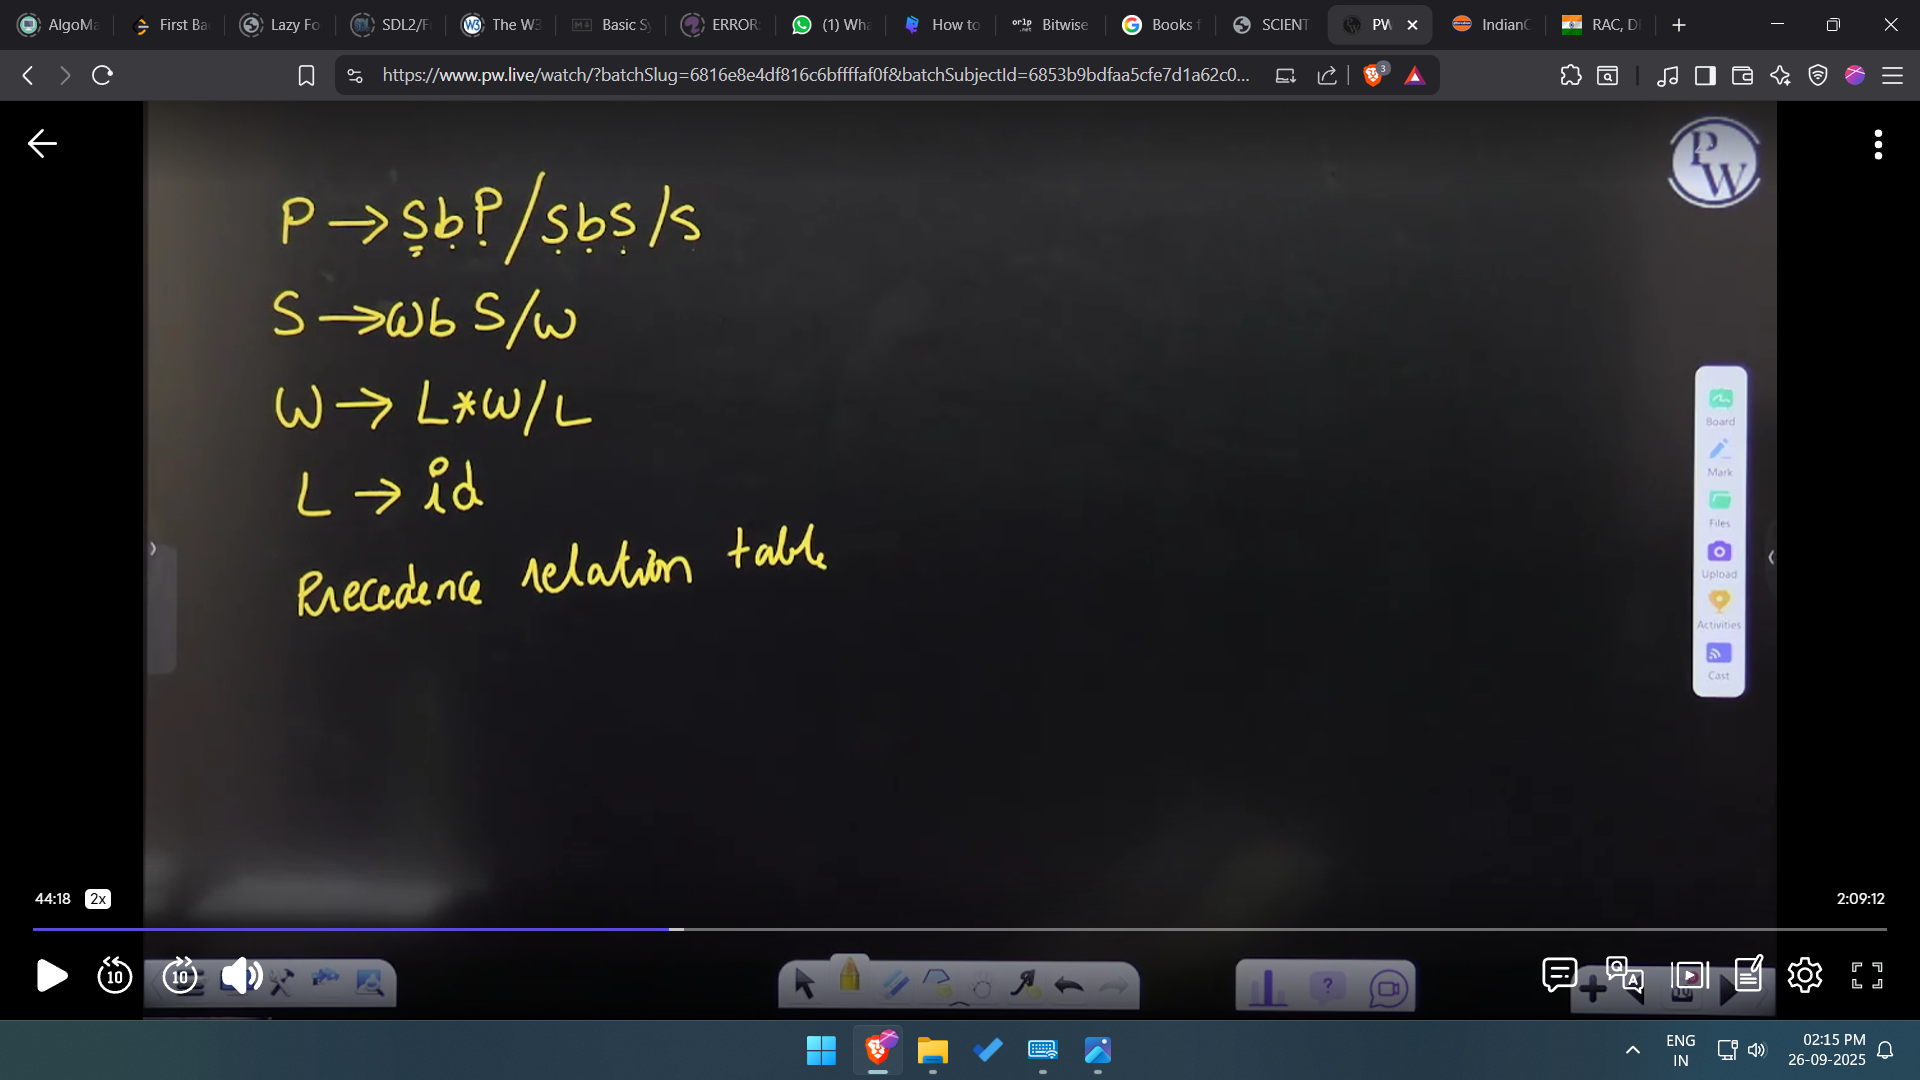 AlgoMa
First Ba
Lazy Fo
SDL2/F
The W3
Basic Sy
ERROR:
(1) Wha
How to
orlp .net
Bitwise
Books f
SCIENT
PW
IndianO
RAC, D
https://www.pw.live/watch/?batchSlug=6816e8e4df816c6bffffaf0f&batchSubjectId=6853b9bdfaa5cfe7d1a62c0...
3
PW
P → SbP / SbS / S
S → wb S / w
W → L*W / L
L → id
Precedence relation table
Board
Mark
Files
Upload
Activities
Cast
44:18 2x
2:09:12
10
10
ENG
IN
02:15 PM
26-09-2025